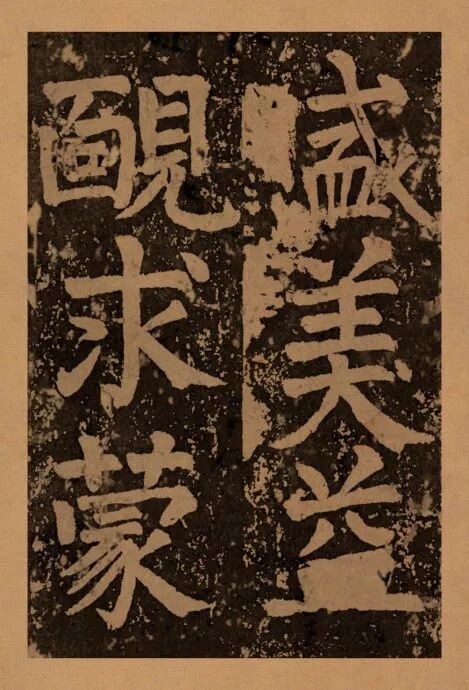 盛美益
靦求蒙